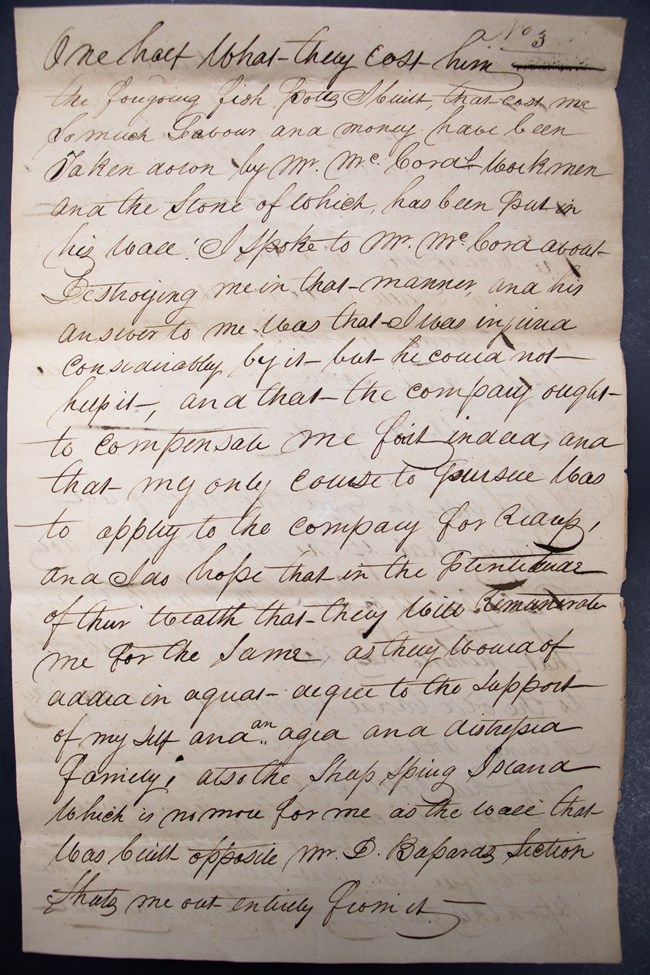 No 3
One half What they cost him
the forgoing fish potts I built, that cost me
So much Labour and money, have been
Taken down by Mr. Mc. Cords Workmen
and the Stone of Which, has been put in
his Wall. I Spoke to Mr. Mc Cord about
Destroying me in that manner, and his
answer to me Was that I Was injured
considerably by it but he could not
help it, and that the company ought
to compensate me for it indeed, and
that my only course to pursue Was
to apply to the company for
and I do hope that in the
of their Wealth that they Will Remunerate
me for the Same, as they Would of
added in a great degree to the Support
of my Self and an aged and distressed
Family; also the Shap Spring Island
Which is no more for me as the Wall that
Was built opposite Mr. D. Section
Shuts me out entirely from it.